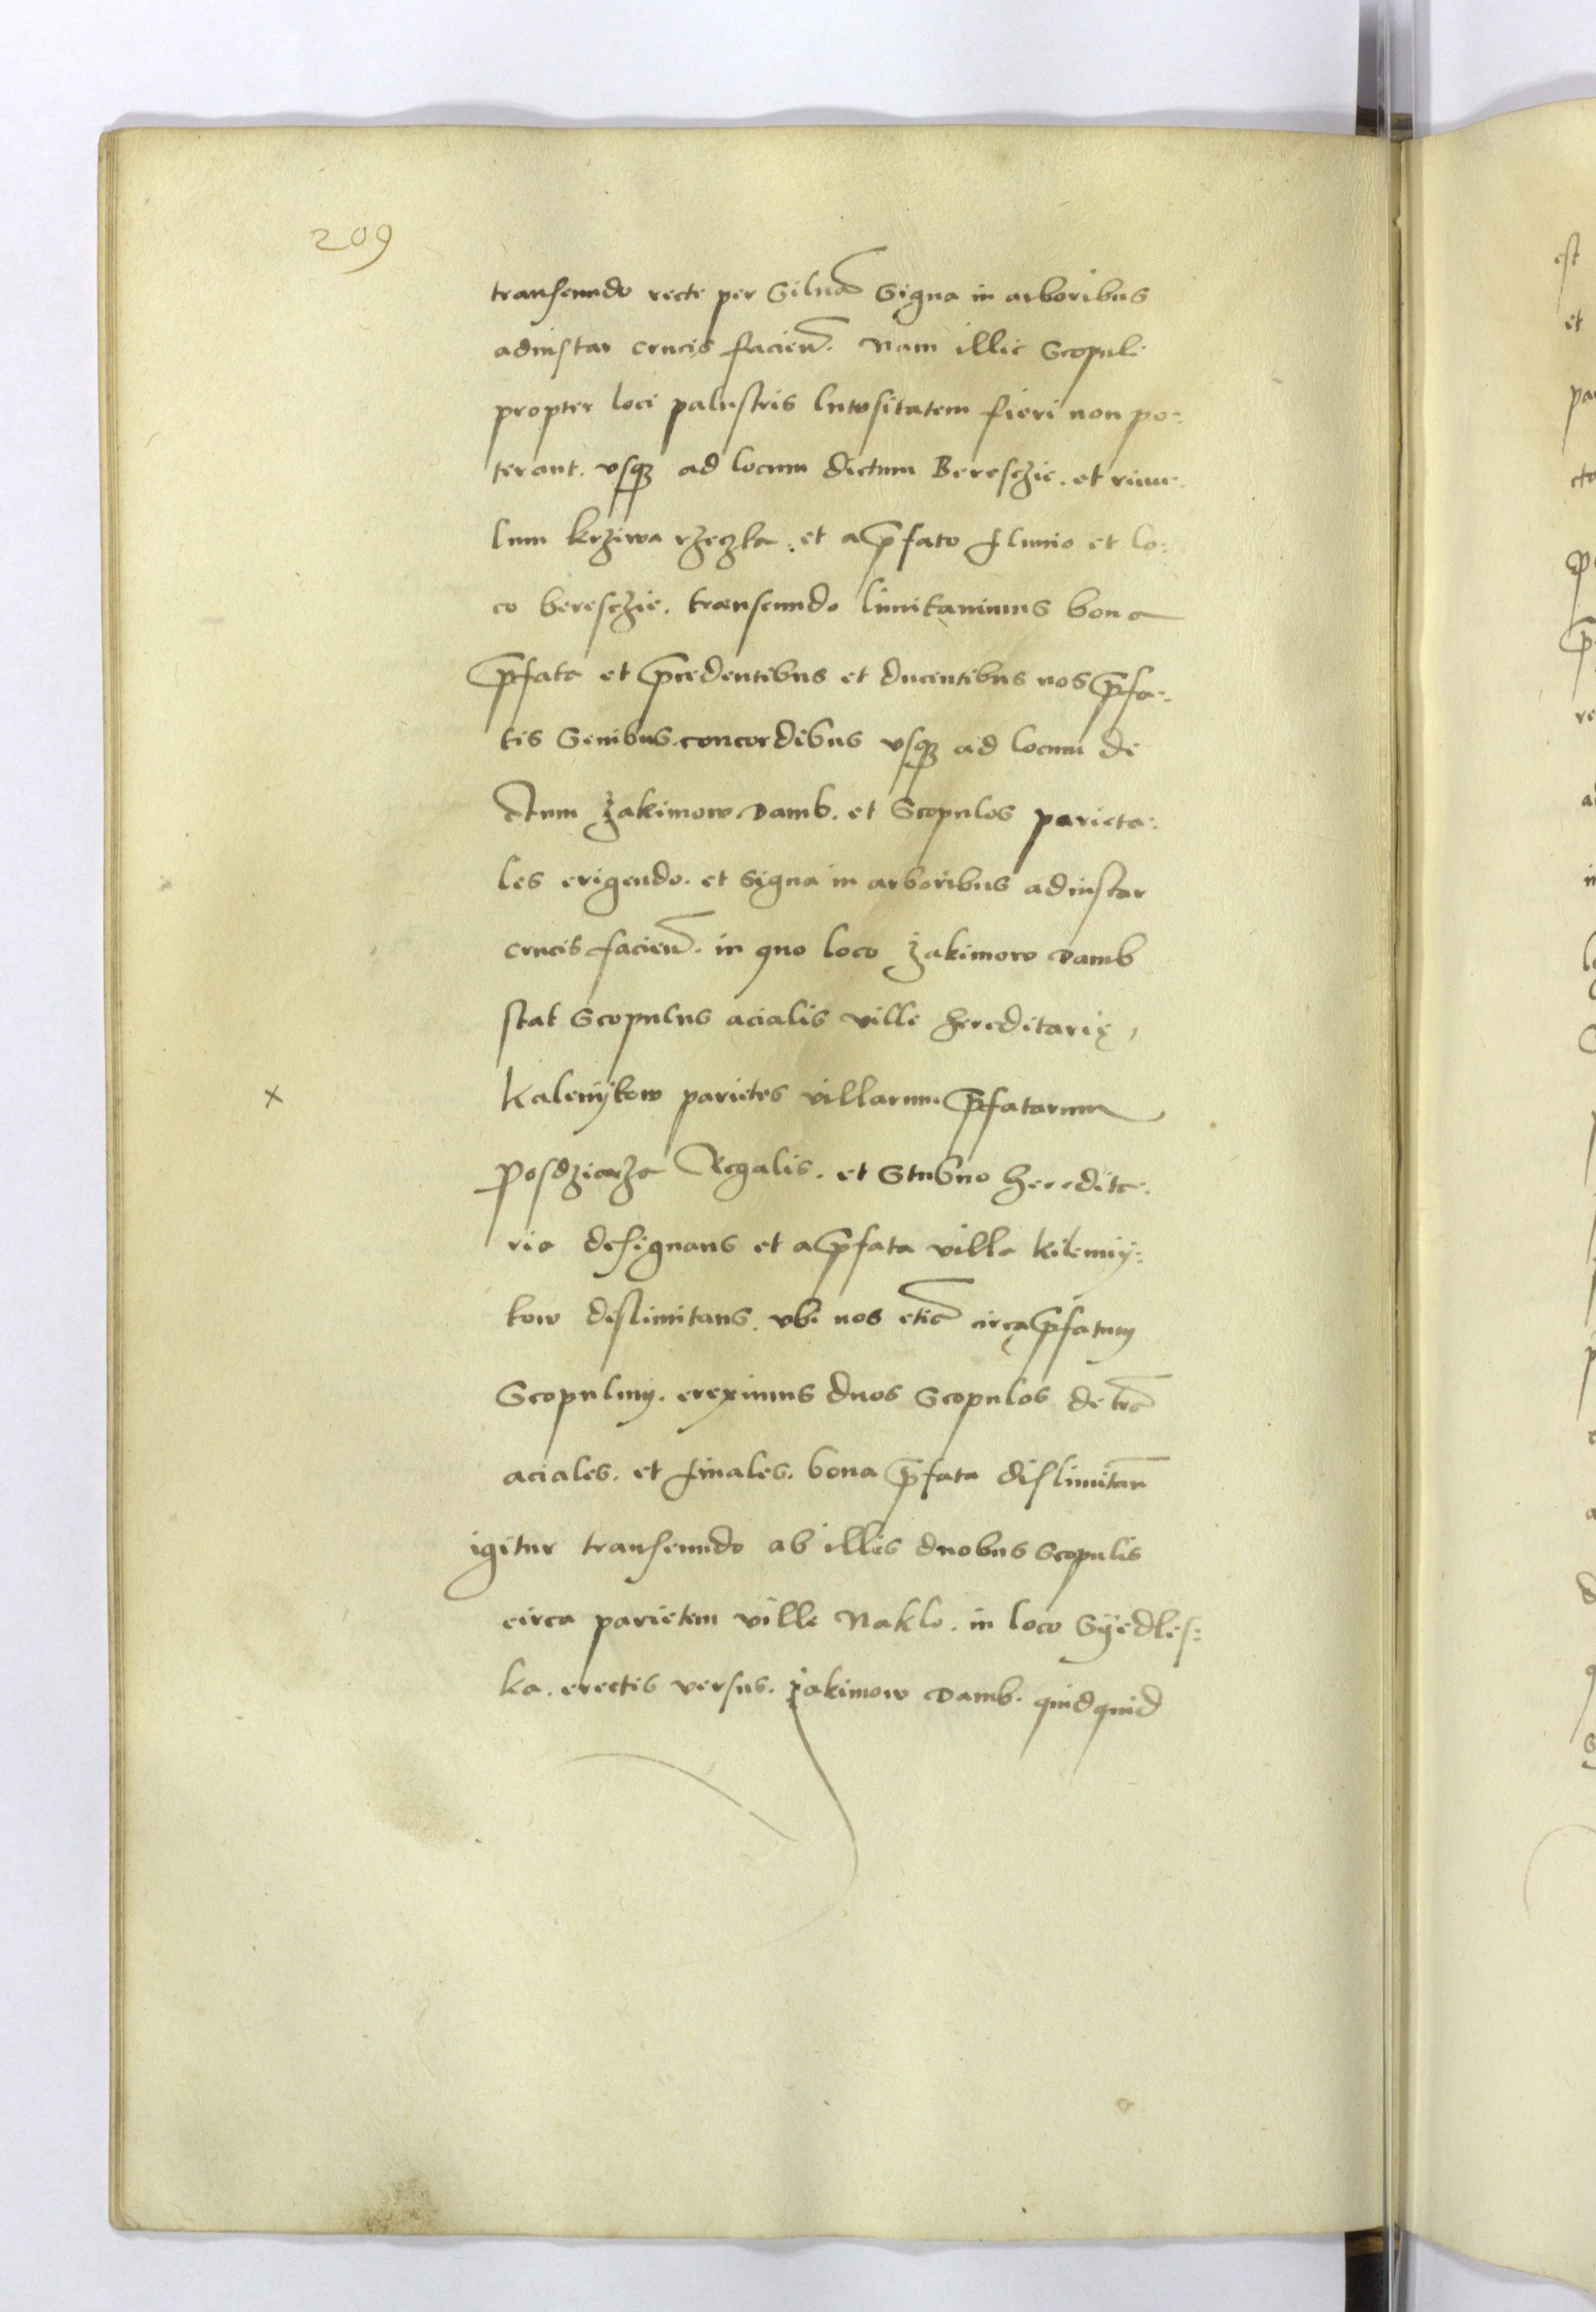 209
transeundo recte per Siluã Signa in arboribus
adinstar crucis facień. Nam illic Scopuli
propter loci palustris lutositatem fieri non po=
terant. vsq3 ad locum dictum Beresczie. et riuu=
lum krziwa rzeczka. et a p̃fato fluuio et lo=
co beresczie. transeundo limitauimus bona
p̃fata et p̃cedentibus et ducentibus nos p̃fa=
tis Senibus concordibus vsq3 ad locum di
ctum Jakimow Damb. et Scopulos parieta=
les erigendo. et Signa in arboribus adinstar
crucis facień. in quo loco Jakimow Damb
stat Scopulus acialis ville hereditarię,
x
Kalenijkow parietes villarum p̃fatarum
Regalis. et Stubno heredita=
ria designans et a p̃fata villa
kow dislimitans. vbi nos etiã circa p̃fatum
Scopulum. ereximus duos Scopulos de trã
aciales. et finales. bona p̃fata dislimitañ
igitur transeundo ab illis duobus Scopulis
circa parietem ville Naklo. in loco Syedlis=
ka. erectis versus. Jakimow Damb. quidquid
est
et